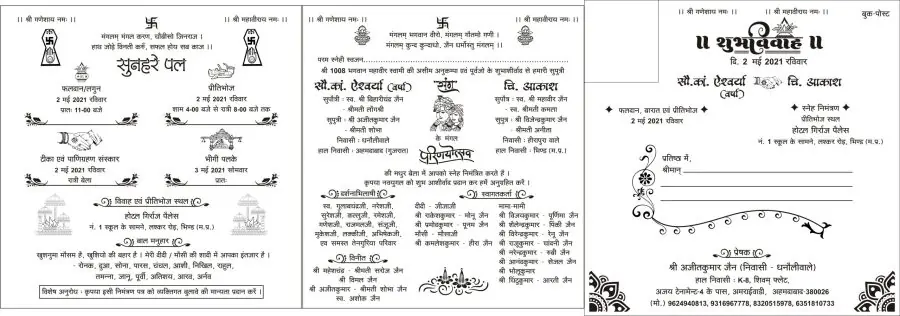 ।। श्री गणेशाय नमः ।।
।। श्री महावीराय नमः ।।
मंगलम् भगल करण, चौबीसो जिनराज ।
हाथ जोड़े विनती करूँ, सफल होय सब काज ।।
सुनहरे पल
फलदान/लगुन
2 मई 2021 रविवार
प्रातः 11-00 बजे
प्रीतिभोज
2 मई 2021 रविवार
शाम 4-00 बजे से रात्री 8-00 बजे तक
टीका एवं पाणिग्रहण संस्कार
2 मई 2021 रविवार
रात्री बेला
भीगी पलके
3 मई 2021 सोमवार
प्रातः
विवाह एवं प्रीतिभोज स्थल
होटल गिर्राज पैलेस
नं. 1 स्कूल के सामने, लश्कर रोड़, भिण्ड (म.प्र.)
बाल मनुहार
खुशनुमा मौसम है, खुशियो की बहार है । मेरी दीदी / मौसी की शादी में आपका इंतजार है ।
- रोनक, दुआ, सोना, पारस, चंचल, आशी, निखिल, राहुल,
तमन्ना, जानू, पूर्वी, अतिशय, आरव, अर्नव
विशेष अनुरोध - कृपया इसी निमंत्रण पत्र को व्यक्तिगत बुलावे की मान्यता प्रदान करें ।
।। श्री गणेशाय नमः ।।
।। श्री महावीराय नमः ।।
मंगलम् भगवान वीरो, मंगलम् गौतमो गणी ।
मंगलम् कुन्द कुन्दाद्यो, जैन धर्मोस्तु मंगलम् ।।
परम स्नेही स्वजन
श्री 1008 भगवान महावीर स्वामी की असीम अनुकम्पा एवं पूर्वजो के शुभाशीर्वाद से हमारी सुपुत्री
सौ.कां. ऐश्वर्या
(वर्षा)
संग
चि. आकाश
सुपौत्री : स्व. श्री बिहारीचंद जैन
- श्रीमती लोंगश्री
सुपुत्री : श्री अजीतकुमार जैन
- श्रीमती शोभा
निवासी : धनौलीवाले
हाल निवासी : अहमदाबाद (गुजरात)
सुपौत्र : स्व. श्री महावीर जैन
- स्व. श्रीमती कमला
सुपुत्र : श्री विजेन्द्रकुमार जैन
- श्रीमती अनीता
निवासी : हीरापुरा वाले
हाल निवासी : भिण्ड (म.प्र.)
के मंगल
परिणयोत्सव
की मधुर बेला में आपको स्नेह निमंत्रित करते हैं ।
कृपया नवयुगल को शुभ आशीर्वाद प्रदान कर हमें अनुग्रहित करें ।
दर्शनाभिलाषी
स्व. गुलाबचंदजी, नरेशजी,
सुरेशजी, कल्लूजी, रमेशजी,
गणेशजी, राजमलजी, संजूजी,
मुकेशजी, लक्कीजी, अभिषेकजी
एवं समस्त तेनगुरिया परिवार
विनीत
श्री महेशचंद - श्रीमती सरोज जैन
श्री विमल जैन
श्री अजीतकुमार - श्रीमती शोभा जैन
स्व. अशोक जैन
स्वागतकर्ता
दीदी - जीजाजी
श्री राकेशकुमार - मोनू जैन
श्री प्रमोदकुमार - पूनम जैन
मौसी - मौसाजी
श्री कमलेशकुमार - हीरा जैन
मामा-मामी
श्री विजयकुमार - पूर्णिमा जैन
श्री शैलेन्द्रकुमार - पिंकी जैन
श्री विरेन्द्रकुमार - रेनू जैन
श्री राजूकुमार - चांदनी जैन
श्री नरेन्द्रकुमार - रूबी जैन
श्री आनंदकुमार - सेजल जैन
श्री भोलूकुमार
श्री चिंटूकुमार - आरती जैन
।। श्री गणेशाय नमः ।।
।। श्री महावीराय नमः ।।
बुक-पोस्ट
॥ शुभविवाह ॥
दि. 2 मई 2021 रविवार
सौ.कां. ऐश्वर्या
(वर्षा)
चि. आकाश
फलदान, बारात एवं प्रीतिभोज
2 मई 2021 रविवार
स्नेह निमंत्रण
प्रीतिभोज स्थल
होटल गिर्राज पैलेस
नं. 1 स्कूल के सामने, लश्कर रोड़, भिण्ड (म.प्र.)
प्रतिष्ठ में,
श्रीमान्
प्रेषक
श्री अजीतकुमार जैन (निवासी - धनौलीवाले)
हाल निवासी : K-8, शिवम् फ्लेट,
अजय टेनामेन्ट-4 के पास, अमराईवाडी, अहमदाबाद-380026
(मो.) 9624940813, 9316967778, 8320515978, 6351810733